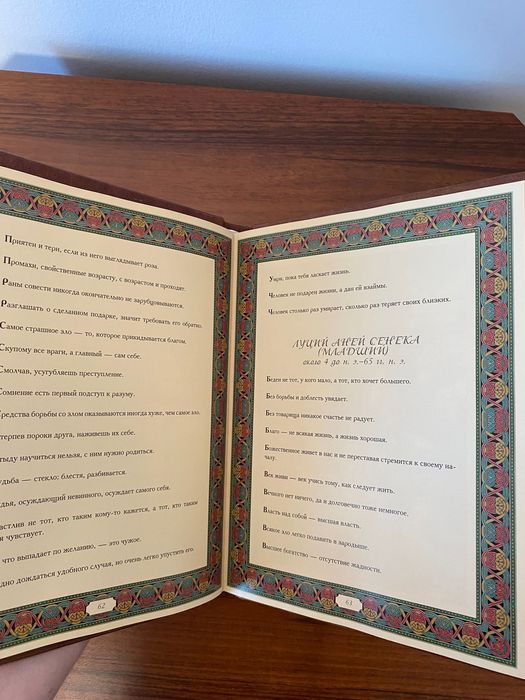 Приятен и терн, если из него выглядывает роза.
Промахи, свойственные возрасту, с возрастом и проходят.
Раны совести никогда окончательно не зарубцовываются.
Разглашать о сделанном подарке, значит требовать его обратно.
Самое страшное зло — то, которое прикидывается благом.
Скупому все враги, а главный — сам себе.
Смолчав, усугубляешь преступление.
Сомнение есть первый подступ к разуму.
редства борьбы со злом оказываются иногда хуже, чем самое зло.
терпев пороки друга, наживешь их себе.
тыду научиться нельзя, с ним нужно родиться.
удьба — стекло: блестя, разбивается.
дья, осуждающий невинного, осуждает самого себя.
астлив не тот, кто таким кому-то кажется, а тот, кто таким
я чувствует.
что выпадает по желанию, — это чужое.
дно дождаться удобного случая, но очень легко упустить его.
62
Умри, пока тебя ласкает жизнь.
Человек не подарен жизни, а дан ей взаймы.
Человек столько раз умирает, сколько раз теряет своих близких.
ЛУЦИЙ АНЕЙ СЕНЕКА
(МЛАДШИЙ)
около 4 до н. э.–65 гг. н. э.
Беден не тот, у кого мало, а тот, кто хочет большего.
Без борьбы и доблесть увядает.
Без товарища никакое счастье не радует.
Благо — не всякая жизнь, а жизнь хорошая.
Божественное живет в нас и не переставая стремится к своему на-
чалу.
Век живи — век учись тому, как следует жить.
Вечного нет ничего, да и долговечно тоже немногое.
Власть над собой — высшая власть.
Всякое зло легко подавить в зародыше.
Высшее богатство — отсутствие жадности.
63